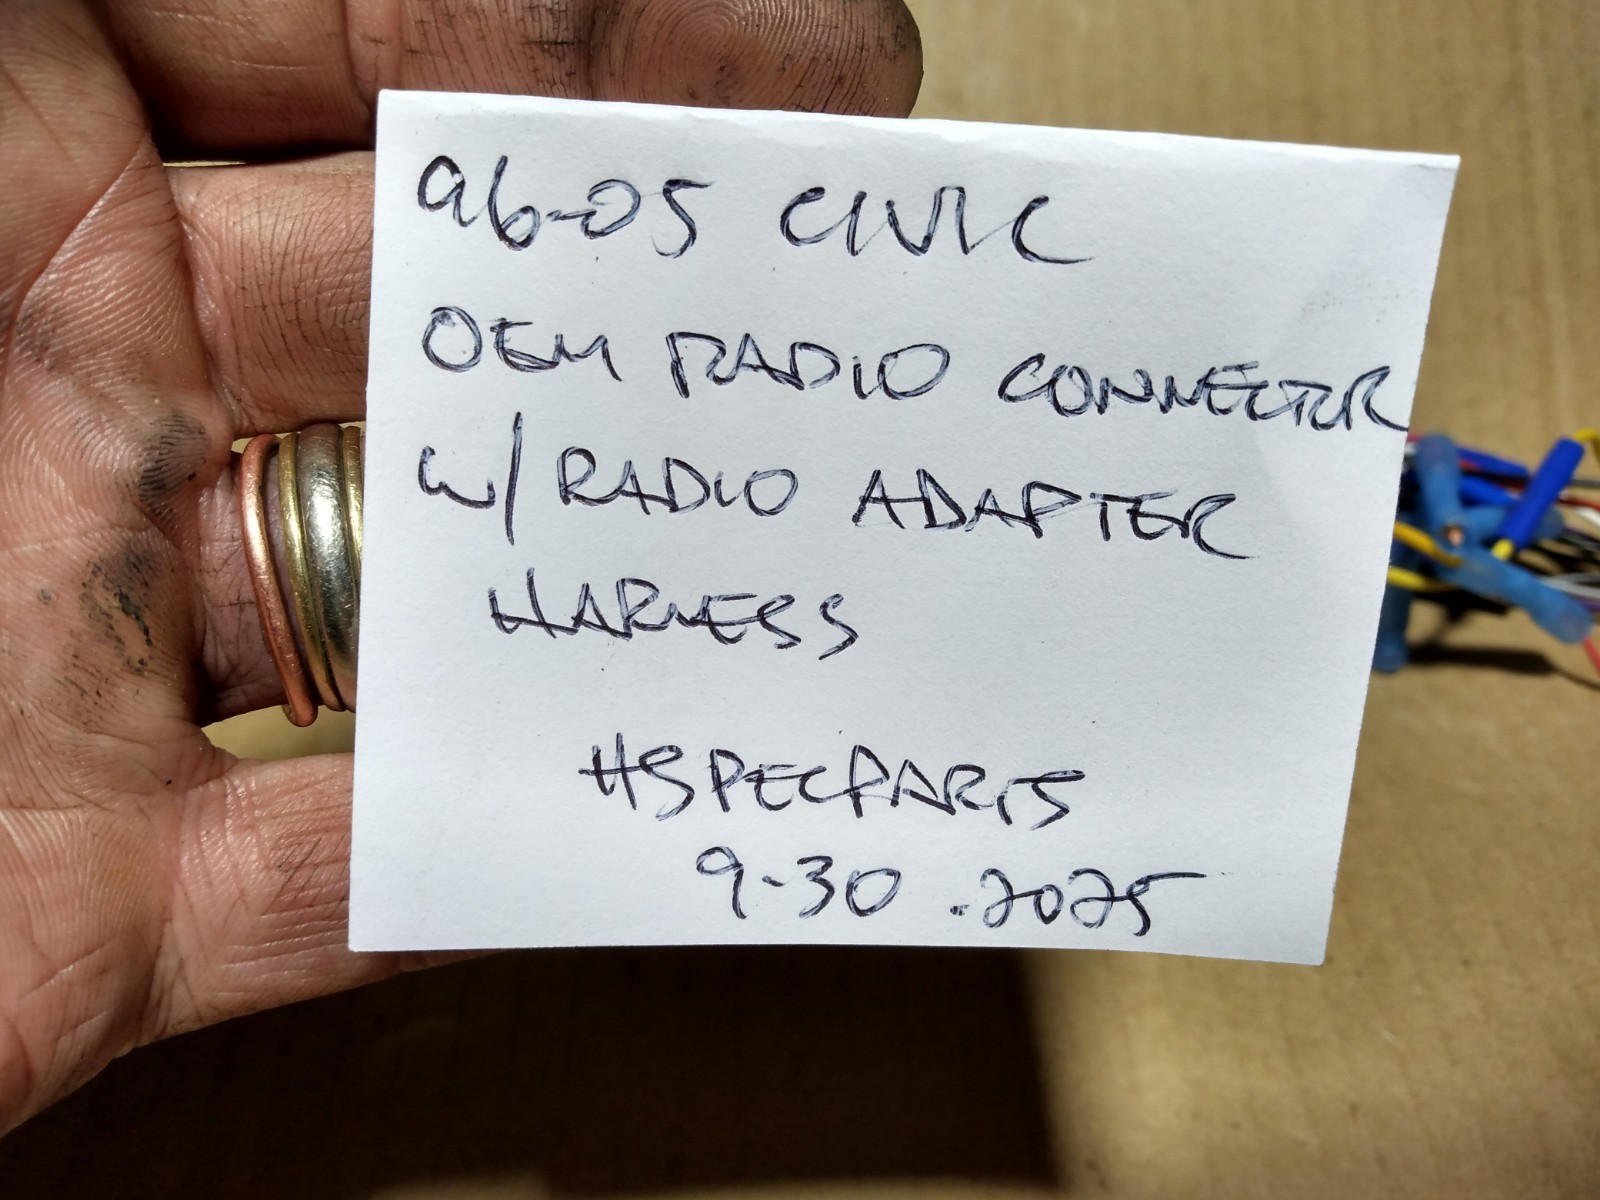 96-05 CIVIC
OEM RADIO CONNECTR
W/ RADIO ADAPTER
HARNESS
HSPECPARTS
9-30.2025